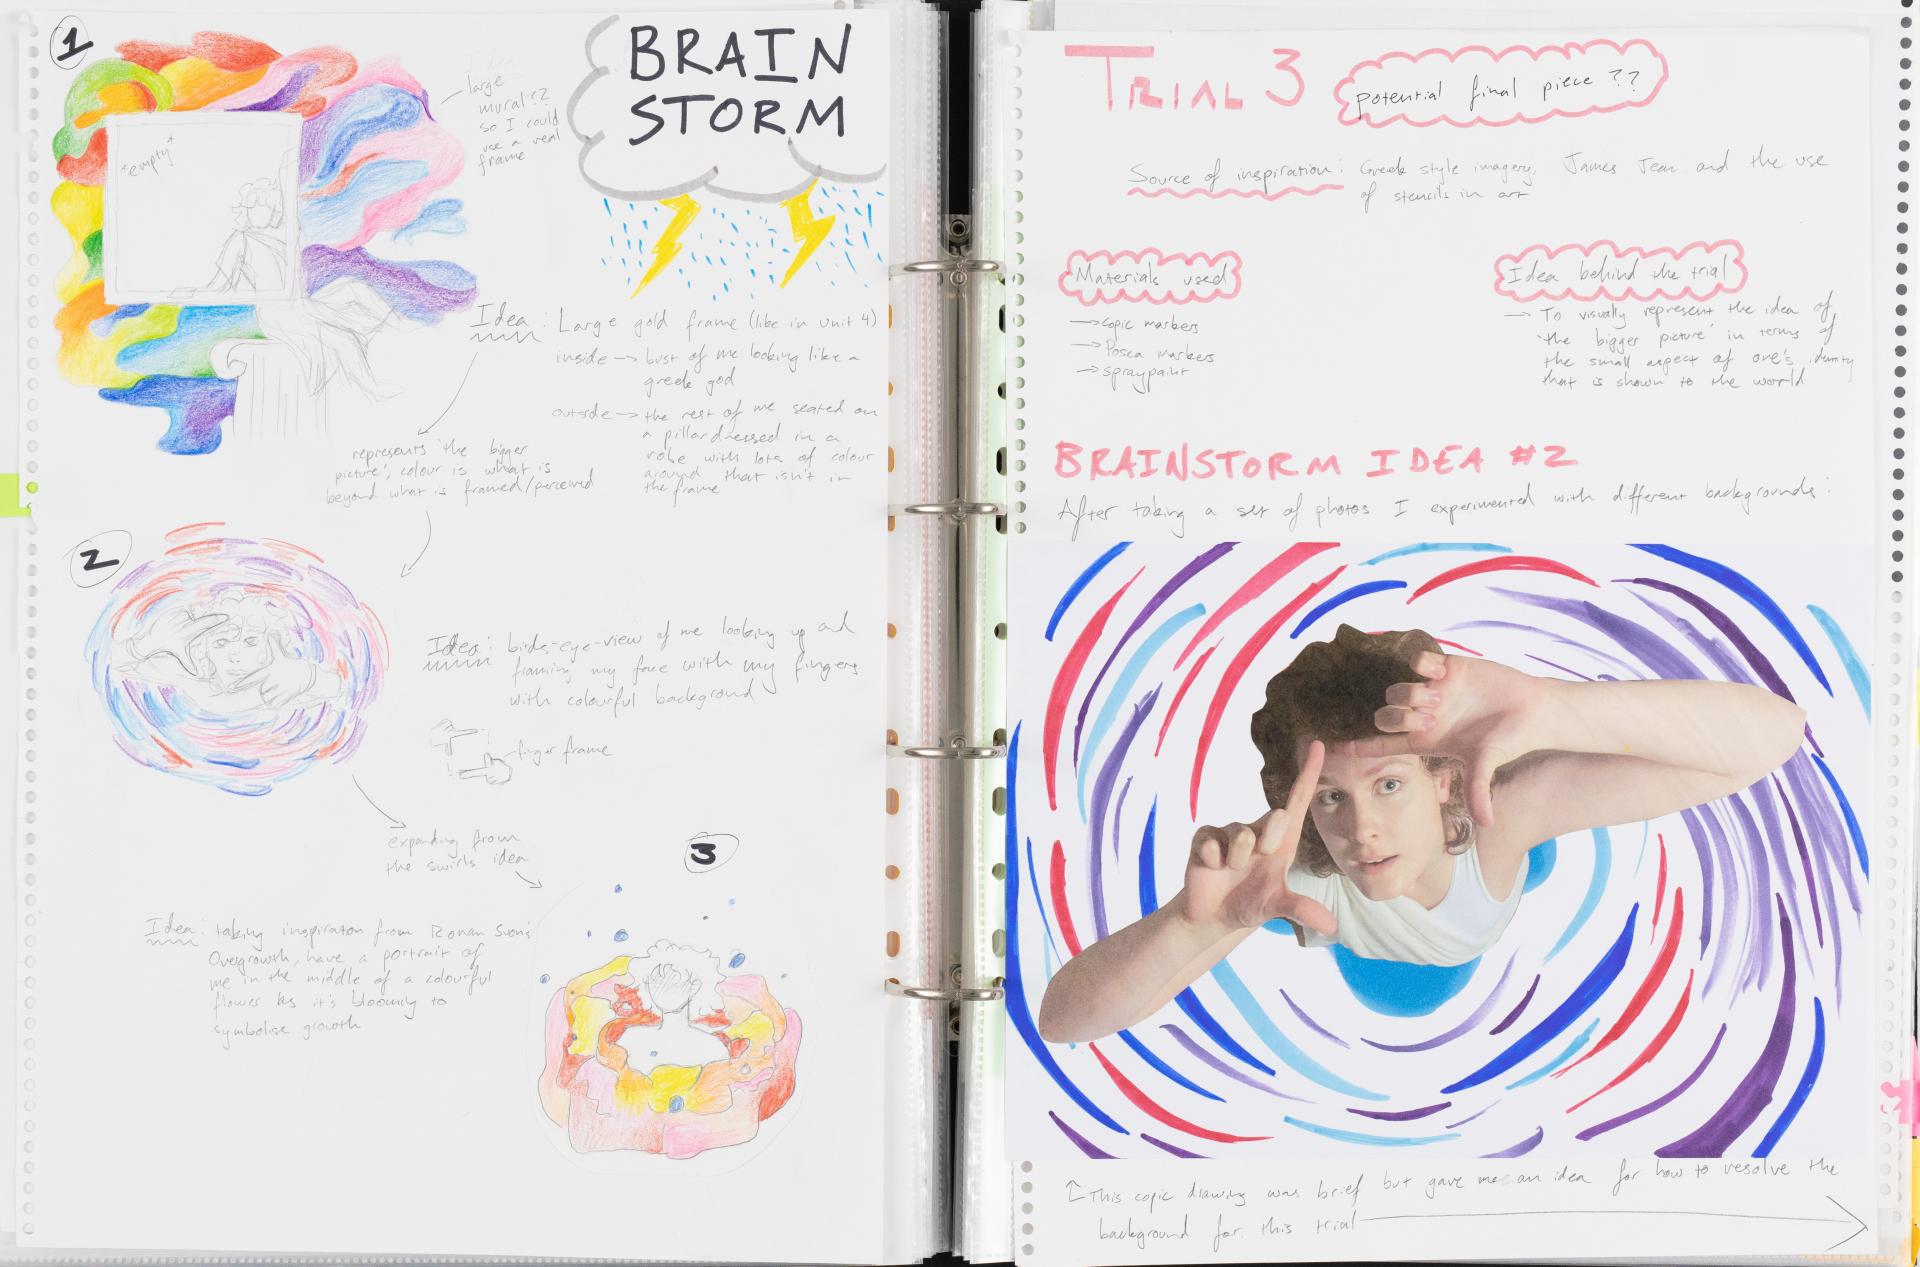 1
Idea
large
mural??
so I could
use a real
frame
BRAIN
STORM
*empty*
Idea: Large gold frame (like in unit 4)
inside → bust of me looking like a
greek god
outside → the rest of me seated on
a pillar dressed in a
robe with lots of colour
around that isn't in
the frame
represents 'the bigger
picture', colour is what is
beyond what is framed/perceived
2
Idea: birds-eye-view of me looking up and
framing my face with my fingers
with colourful background
finger frame
expanding from
the swirls idea
3
Idea: taking inspiraton from Ronan
Overgrowth, have a portrait of
me in the middle of a colourful
flower as it's blooming to
symbolise growth
TRIAL 3
potential final piece ??
Source of inspiration: Greek style imagery, James Jean and the use
of stencils in art
Materials used
→ copic markers
→ Posca markers
→ spraypaint
Idea behind the trial
→ To visually represent the idea of
'the bigger picture' in terms of
the small aspect of one's identity
that is shown to the world
BRAINSTORM IDEA #2
After taking a set of photos I experimented with different backgrounds:
↑ This copic drawing was brief but gave me an idea for how to resolve the
background for this trial →